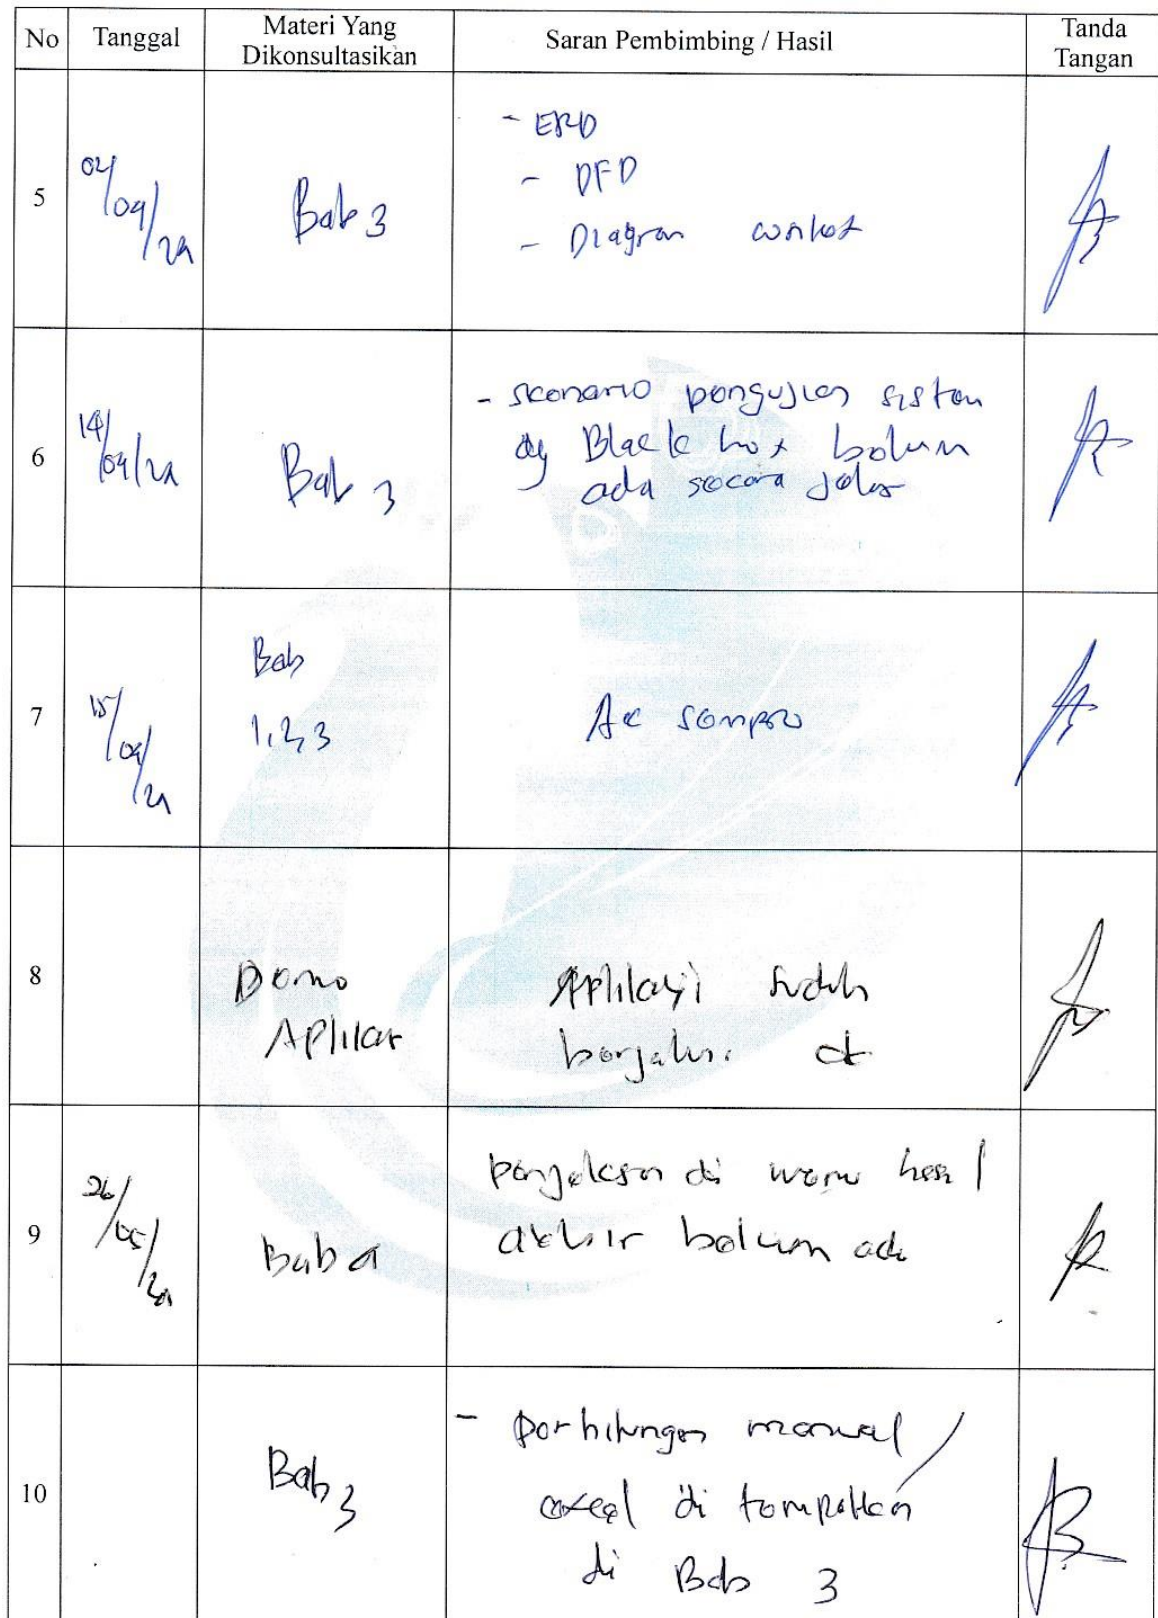 No Tanggal Materi Yang Dikonsultasikan Saran Pembimbing / Hasil Tanda Tangan
5 Bab 3
- ERD
- DFD
- Diagram contex
6 Bab 3
- skenario pengujian sistem
dg Black box belum
ada secara jelas
7 Bab
1,2,3
Acc sempro
8 Demo
Aplikasi
Aplikasi sudah
berjalan. ok
9 Bab 4
penjelasan di menu hasil
akhir belum ada
10 Bab 3
- perhitungan manual/
excel di tempatkan
di Bab 3